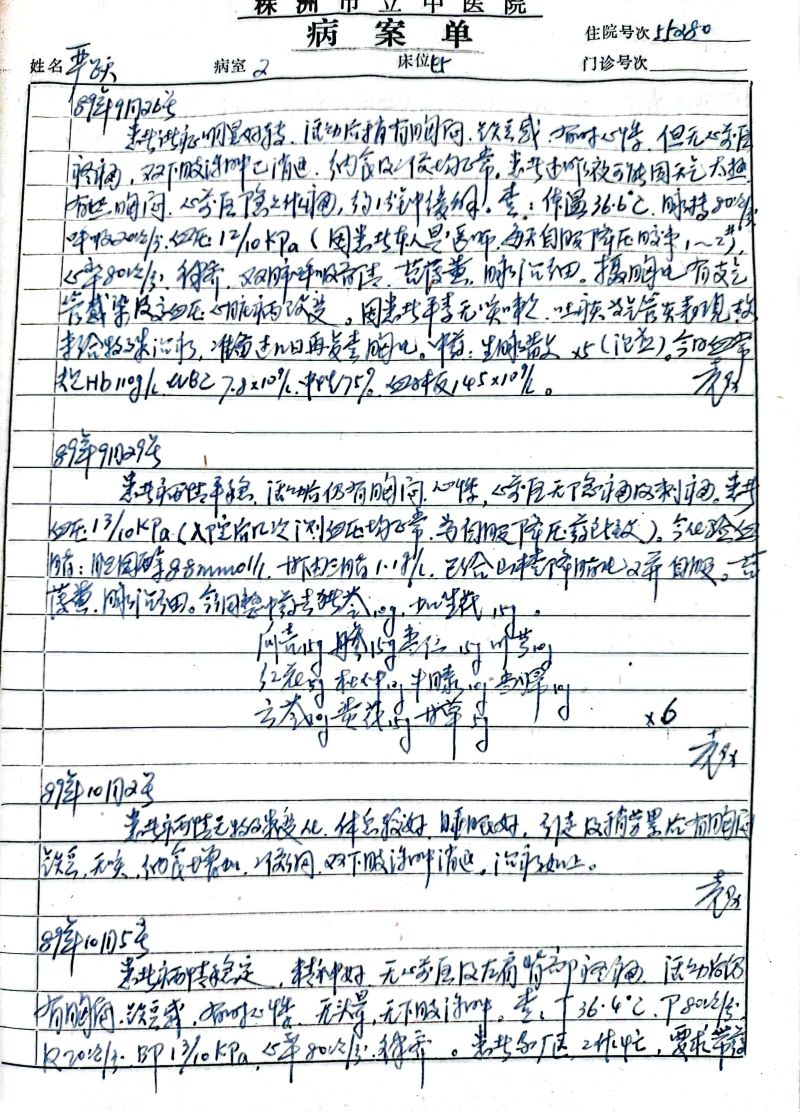 株洲市立中医院
病案单
住院号次55280
姓名 病室2 床位 门诊号次
89年9月26号
患者诸症明显好转，活动后稍有胸闷、气急感，有时心悸，但无心前区
疼痛，双下肢浮肿已消退，纳食及二便均正常。患者述昨夜可能因天气太热
有些胸闷，心前区隐隐作痛，约1分钟缓解。查：体温36.6℃，脉搏80次/分
呼吸20次/分，血压12/10KPa（因患者本人是医师，每天自服降压胶丸1～2#）
心率80次/分，律齐，双肺呼吸音清，苔薄黄，脉沉细。摄胸片有支气
管感染及高血压心脏病改变。因患者平素无咳嗽、吐痰等气管炎表现，故
未给特殊治疗，准备过几日再复查胸片。中药：生脉散 ×5（论查）。今日血常
规Hb110g/L，WBC 7.8×10⁹/L，中性75%，血小板145×10⁹/L。
89年9月29号
患者病情平稳，活动后仍有胸闷、心悸，心前区无隐痛及刺痛。患者
血压13/10KPa（入院后几次测血压均正常，为自服降压药已致）。今化验血
脂：胆固醇8.8mmol/L，甘油三脂1.1g/L，已给 降脂 自服。苔
薄黄，脉沉细。今调整中药去 10g，加生芪15g。
15g 丹参15g 枣仁15g 川芎10g
红花5g 杜仲10g 牛膝10g 当归10g
云苓10g 黄芪15g 甘草5g ×6
89年10月2号
患者病情无特殊变化，体息较好，睡眠好，行走及稍劳累后有胸闷
气急，无咳，纳食增加，二便调，双下肢浮肿消退。治疗如上。
89年10月5号
患者病情稳定，精神好，无心前区及左肩背部疼痛，活动后仍
有胸闷、气急感，有时心悸，无头晕，无下肢浮肿。查：T 36.4℃，P 80次/分
R 20次/分，BP 13/10KPa，心率80次/分，律齐。患者系厂医，工作忙，要求带药